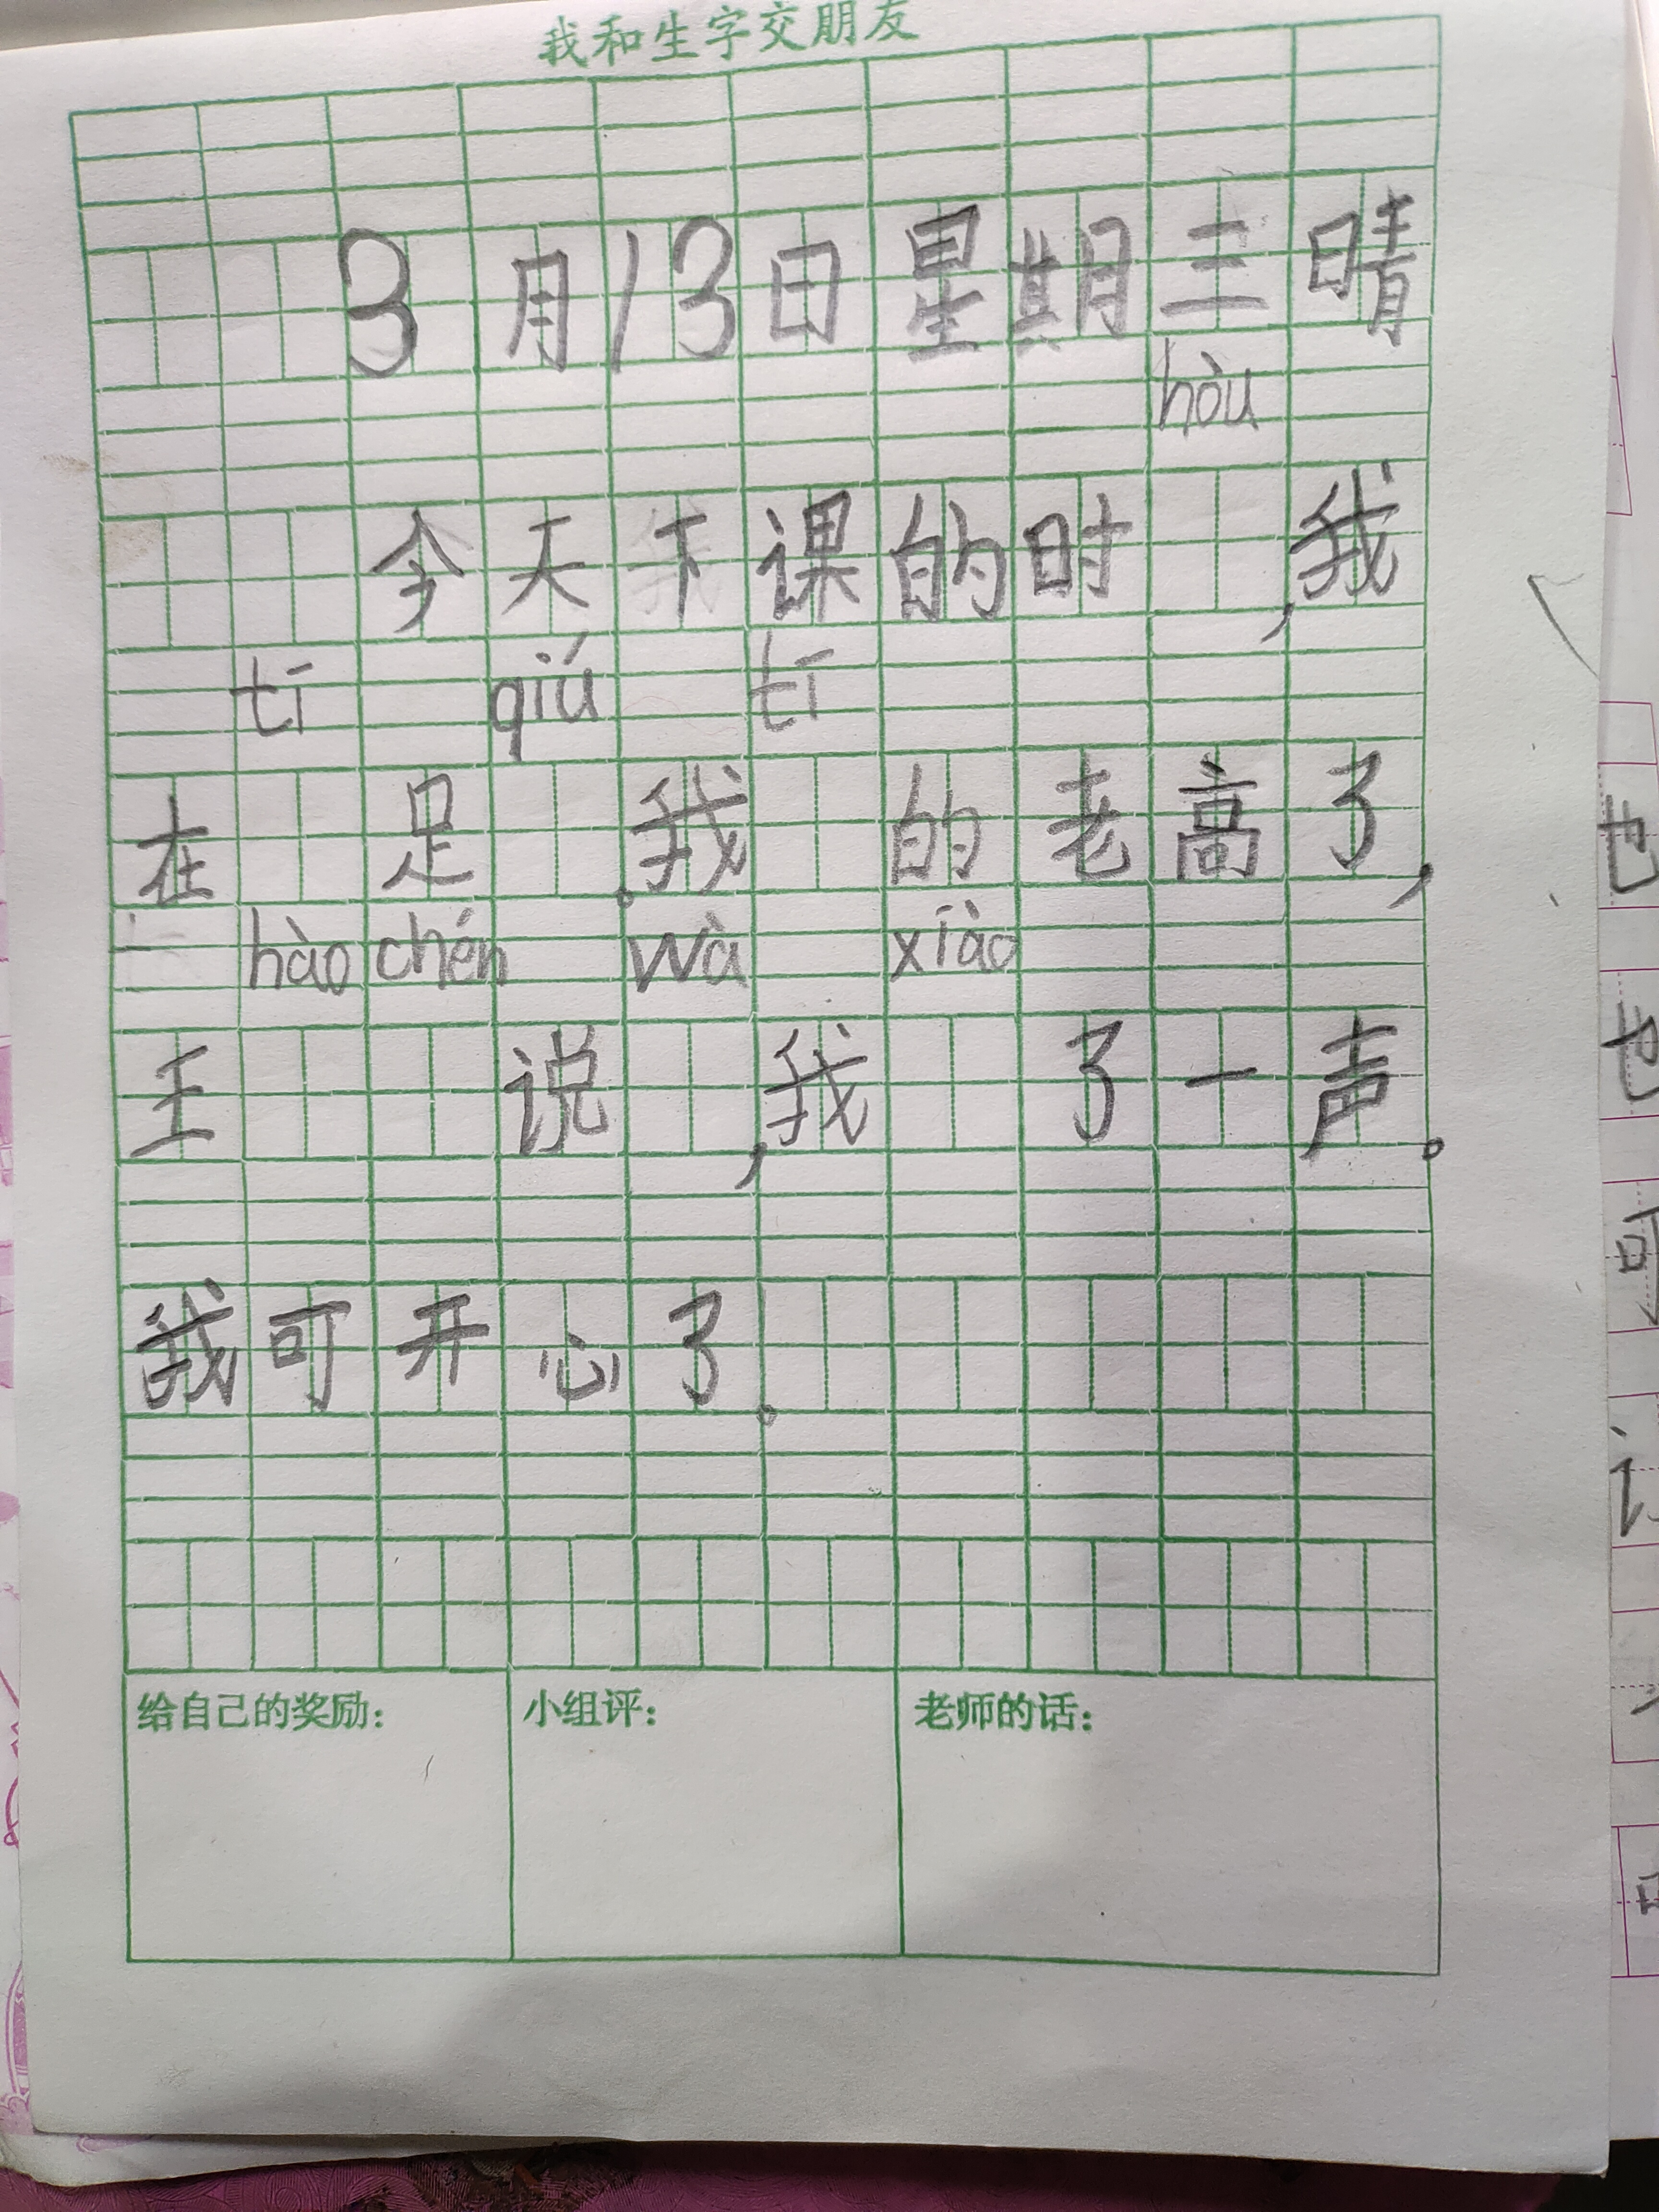 我和生字交朋友
3月13日星期三晴
hòu
今天下课的时，我
tī qiú tī
在足。我的老高了，
hào chén wà xiào
王说，我了一声。
我可开心了。
给自己的奖励：
小组评：
老师的话：
也
也
可